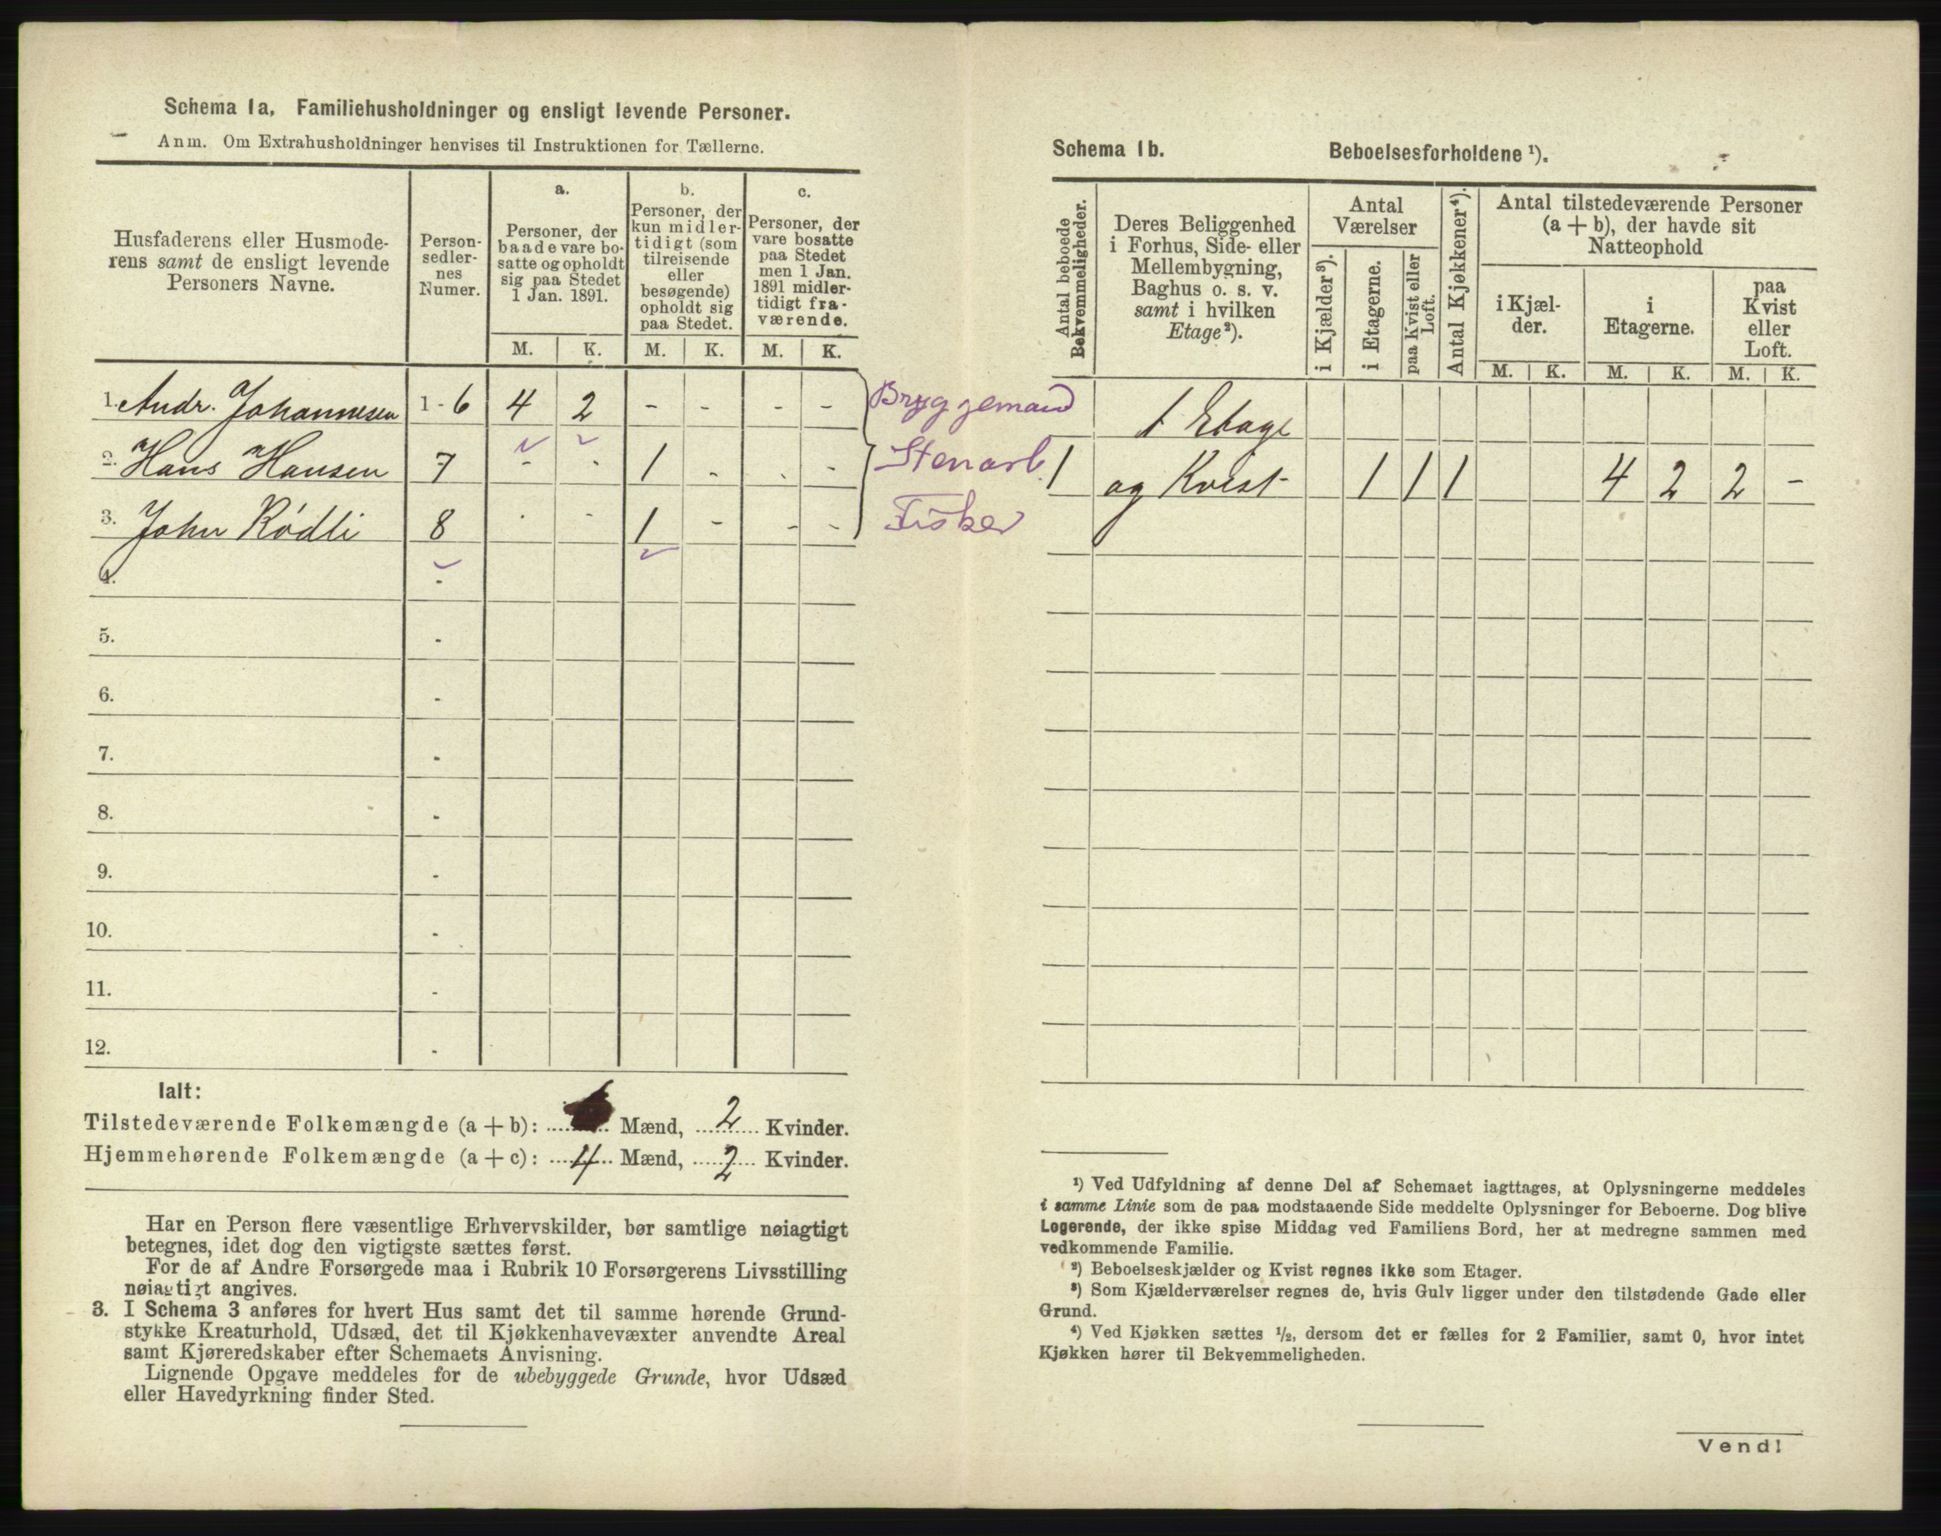 Schema 1a. Familiehusholdninger og ensligt levende Personer.
Anm. Om Extrahusholdninger henvises til Instruktionen for Tællerne.
Husfaderens eller Husmode-
rens samt de ensligt levende
Personers Navne.
Person-
sedler-
nes
Numer.
a.
Personer, der
baade vare bo-
satte og opholdt
sig paa Stedet
1 Jan. 1891.
b.
Personer, der
kun midler-
tidigt (som
tilreisende
eller
besøgende)
opholdt sig
paa Stedet.
c.
Personer, der
vare bosatte
paa Stedet
men 1 Jan.
1891 midler-
tidigt fra-
værende.
M. K. M. K. M. K.
1. Andr. Johannesen 1 - 6 4 2 - - - - Bryggemand
2. Hans Hansen 7 - - 1 - - - Stenarb.
3. John Rödli 8 - - 1 - - - Fisker
4. -
5. -
6. -
7. -
8. -
9. -
10. -
11. -
12. -
Ialt:
Tilstedeværende Folkemængde (a + b): Mænd, 2 Kvinder.
Hjemmehørende Folkemængde (a + c): 4 Mænd, 2 Kvinder.
Har en Person flere væsentlige Erhvervskilder, bør samtlige nøiagtigt
betegnes, idet dog den vigtigste sættes først.
For de af Andre Forsørgede maa i Rubrik 10 Forsørgerens Livsstilling
nøiagtigt angives.
3. I Schema 3 anføres for hvert Hus samt det til samme hørende Grund-
stykke Kreaturhold, Udsæd, det til Kjøkkenhavevæxter anvendte Areal
samt Kjøreredskaber efter Schemaets Anvisning.
Lignende Opgave meddeles for de ubebyggede Grunde, hvor Udsæd
eller Havedyrkning finder Sted.
Schema 1b. Beboelsesforholdene ¹).
Antal beboede
Bekvemmeligheder.
Deres Beliggenhed
i Forhus, Side- eller
Mellembygning,
Baghus o. s. v.
samt i hvilken
Etage²).
Antal
Værelser
i Kjælder³).
i Etagerne.
paa Kvist eller
Loft.
Antal Kjøkkener⁴).
Antal tilstedeværende Personer
(a + b), der havde sit
Natteophold
i Kjæl-
der.
i
Etagerne.
paa
Kvist
eller
Loft.
M. K. M. K. M. K.
1 Etage
1 og Kvist 1 1 1 4 2 2 -
¹) Ved Udfyldning af denne Del af Schemaet iagttages, at Oplysningerne meddeles
i samme Linie som de paa modstaaende Side meddelte Oplysninger for Beboerne. Dog blive
Logerende, der ikke spise Middag ved Familiens Bord, her at medregne sammen med
vedkommende Familie.
²) Beboelseskjælder og Kvist regnes ikke som Etager.
³) Som Kjælderværelser regnes de, hvis Gulv ligger under den tilstødende Gade eller
Grund.
⁴) Ved Kjøkken sættes ½, dersom det er fælles for 2 Familier, samt 0, hvor intet
Kjøkken hører til Bekvemmeligheden.
Vend!